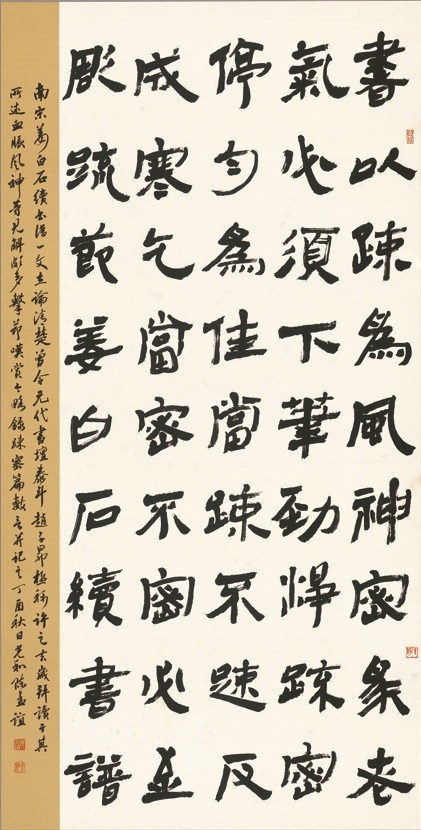 書以疎為風神密為老
氣必須下筆勁淨疎密
停勻為佳當疎不疎反
成寒乞當密不密必至
彫疏節姜白石續書譜
南宋姜白石續書譜一文立論清楚曾令元代書壇泰斗趙子昂極稱許之去歲拜讀于其
所述血脈風神等見解頗多擊節嘆賞今略錄疎密篇數言并記之丁酉秋日光和陳孟誼